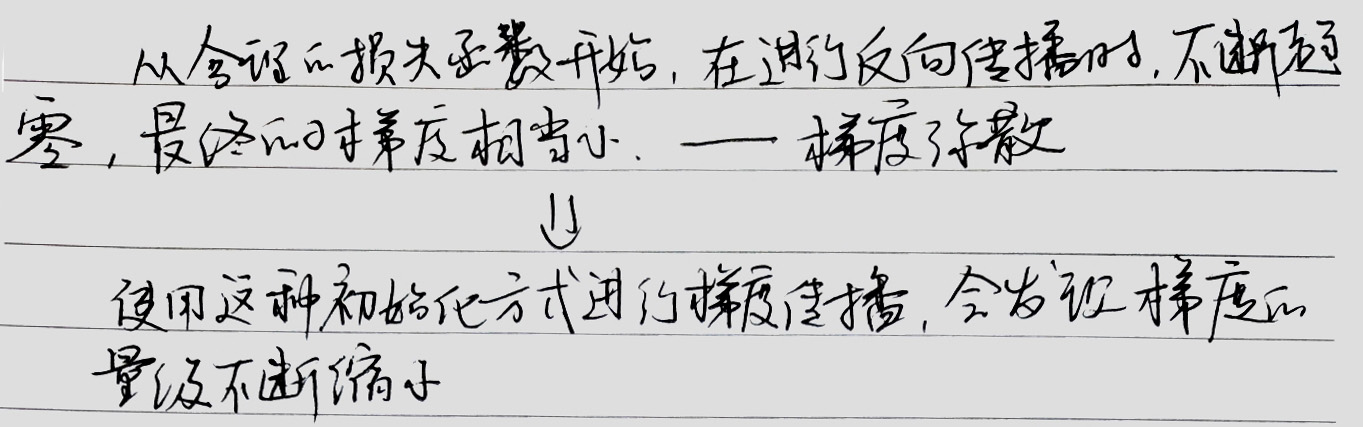 从合理的损失函数开始,在进行反向传播时,不断趋
零,最终的梯度相当小. — 梯度弥散
⇓
使用这种初始化方式进行梯度传播,会发现梯度的
量级不断缩小